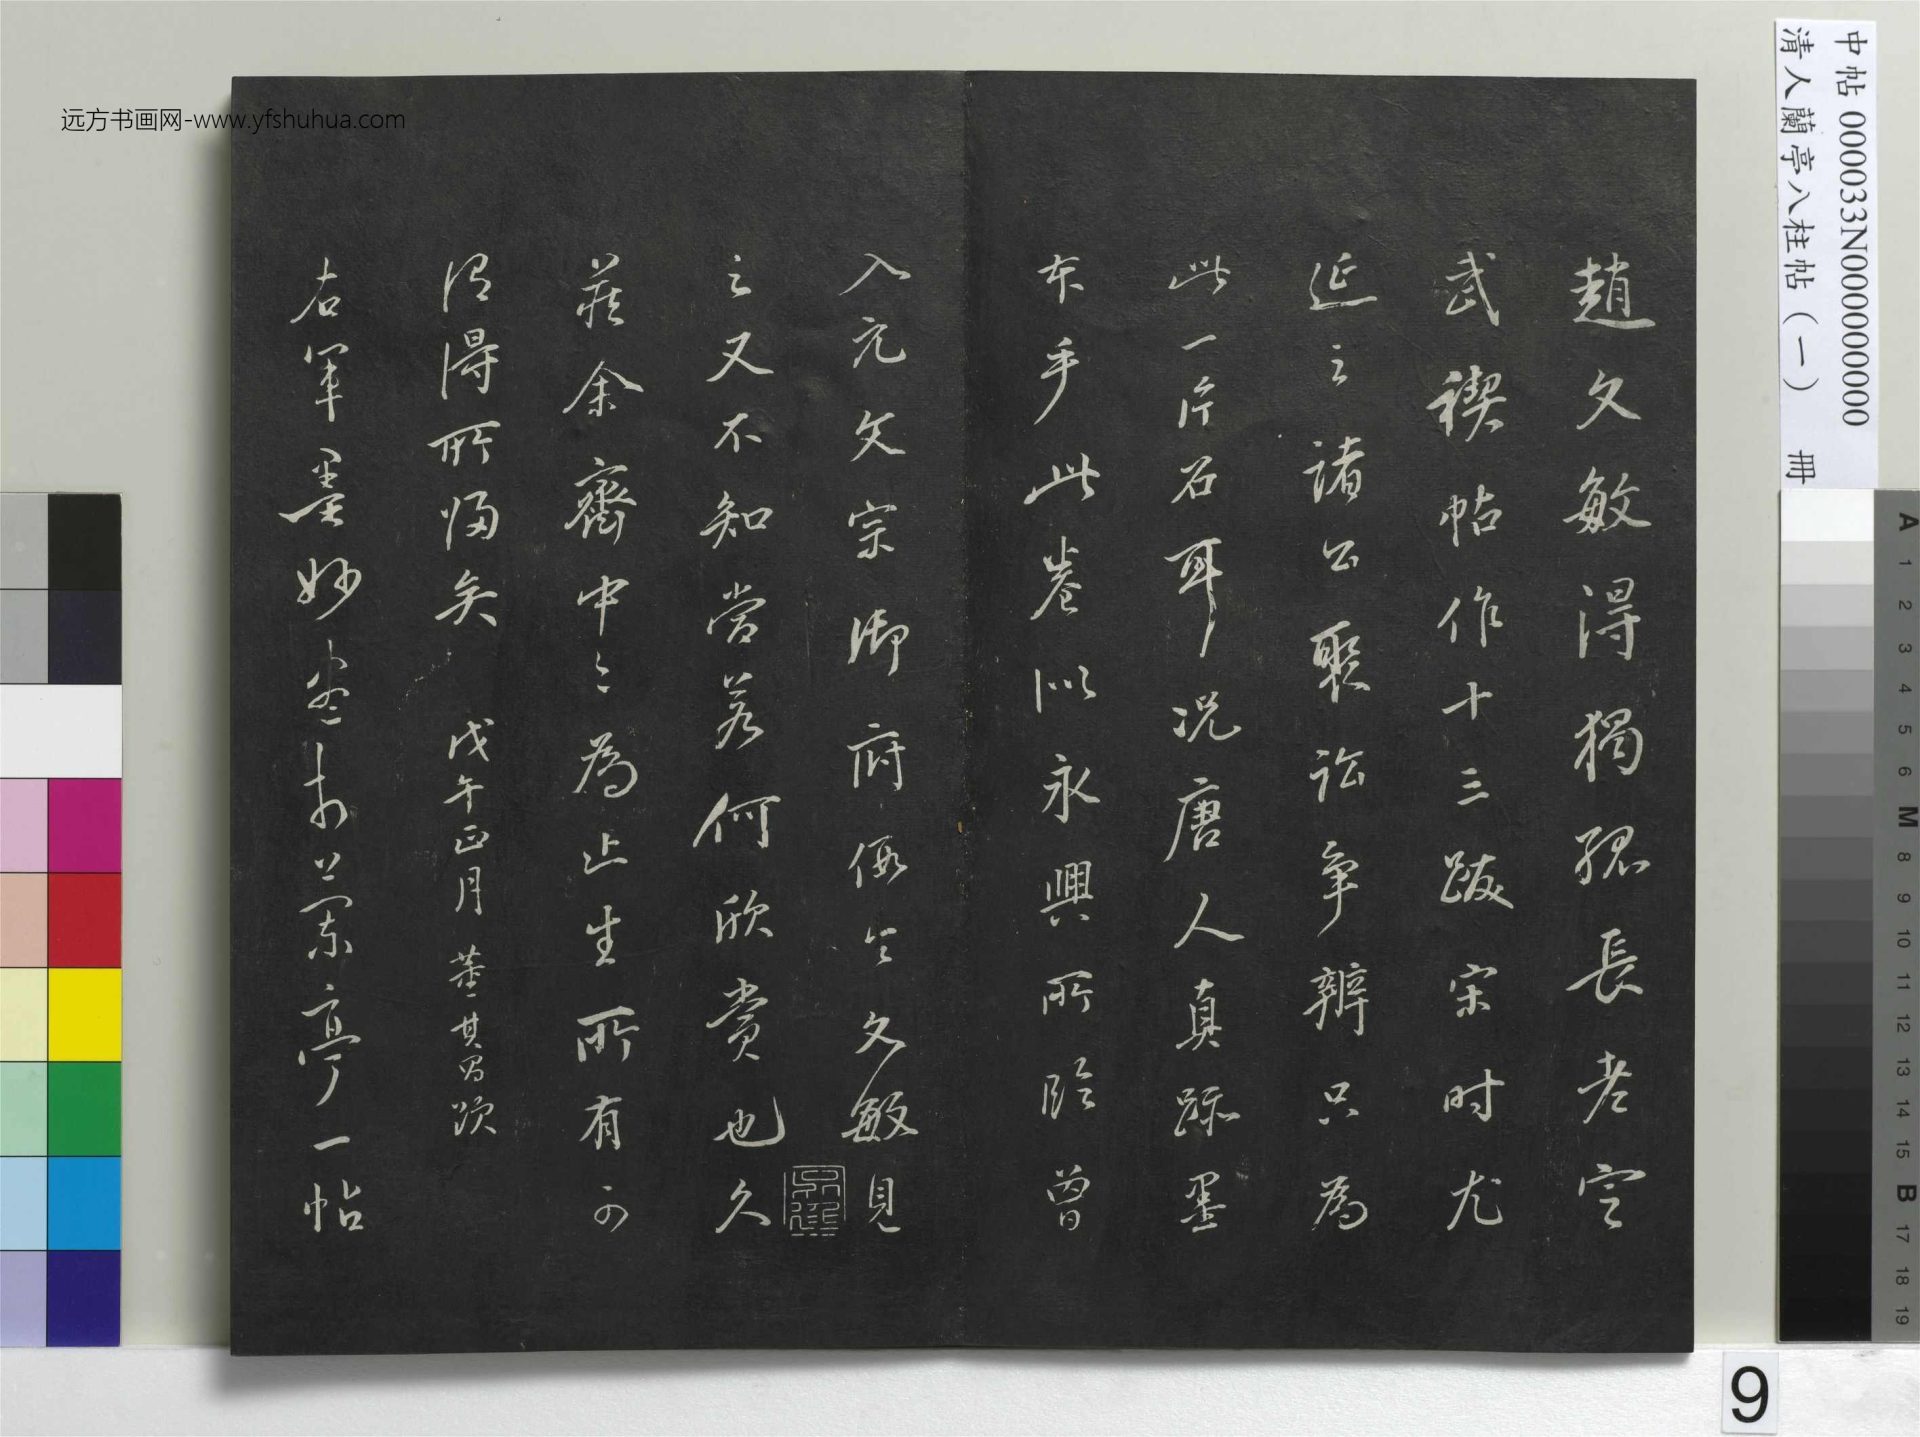 趙文敏得獨孤長老定
武禊帖作十三跋宋时尤
延之諸公聚訟争辨只為
此一片石耳況唐人真跡墨
本手此卷似永興所臨曾
入元文宗御府假令文敏見
之又不知當若何欣賞也久
藏余齋中二為止生所有可
謂得所归矣 戊午正月 董其昌跋
右軍墨妙
蘭亭一帖
远方书画网-www.yfshuhua.com
中帖 000033N000000000
清人蘭亭八柱帖（一） 冊
A
1
2
3
4
5
6
M
8
9
10
11
12
13
14
15
B
17
18
19
9